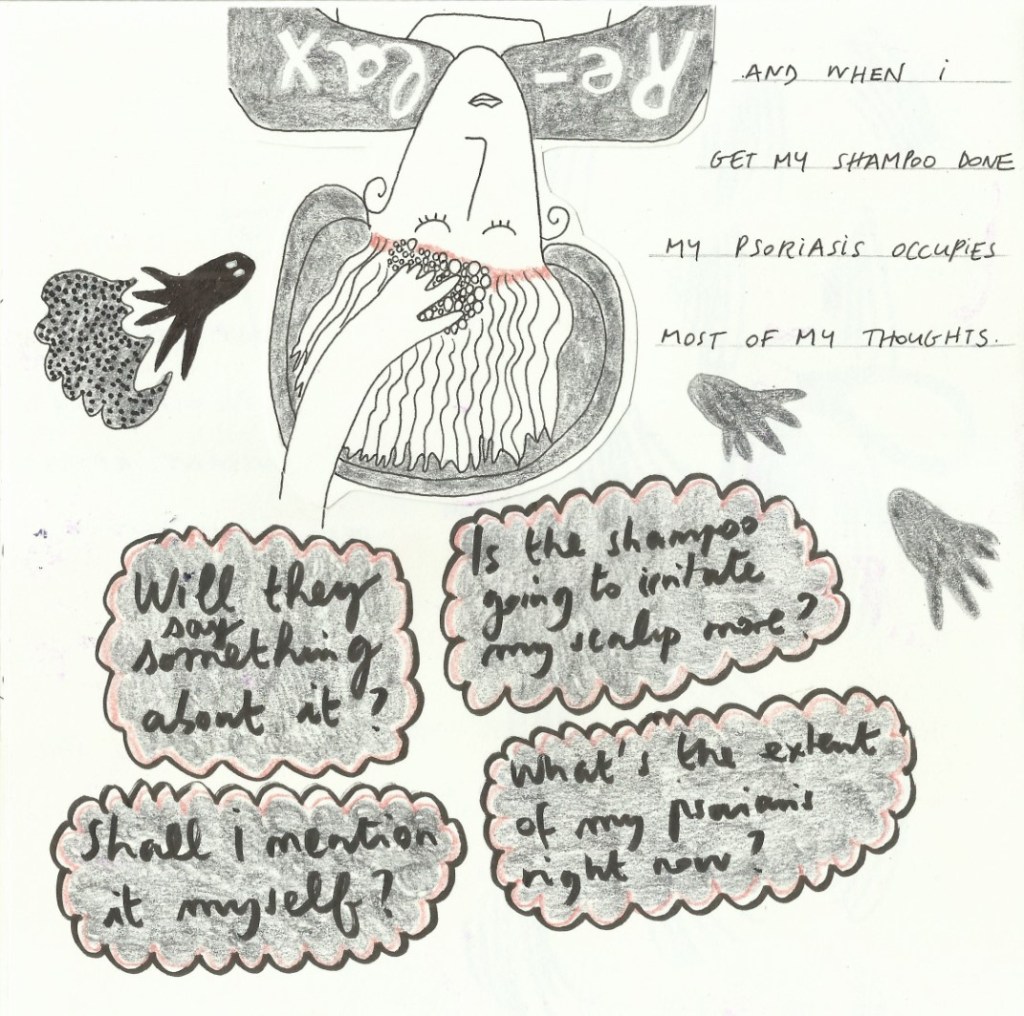 Re-lax
AND WHEN i
GET MY SHAMPOO DONE
MY PSORIASIS OCCUPIES
MOST OF MY THOUGHTS.
Will they
say
something
about it?
Is the shampoo
going to irritate
my scalp more?
Shall i mention
it myself?
What's the extent
of my psoriasis
right now?